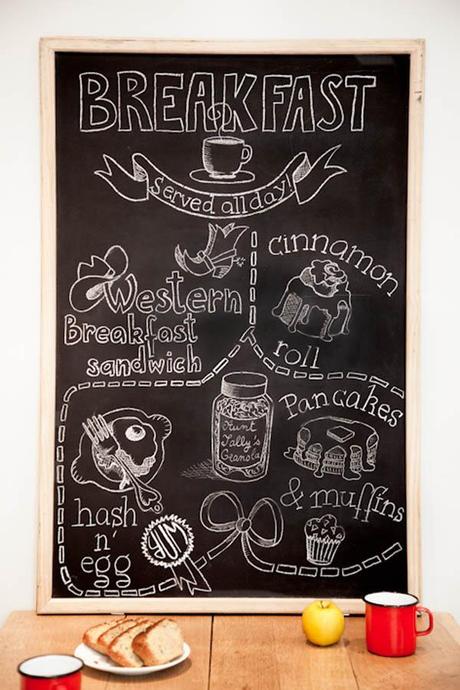 BREAKFAST
Served all day!
Western
Breakfast
sandwich
cinnamon
roll
Aunt
Sally's
Granola
Pancakes
& muffins
hash
n'
egg
YUM